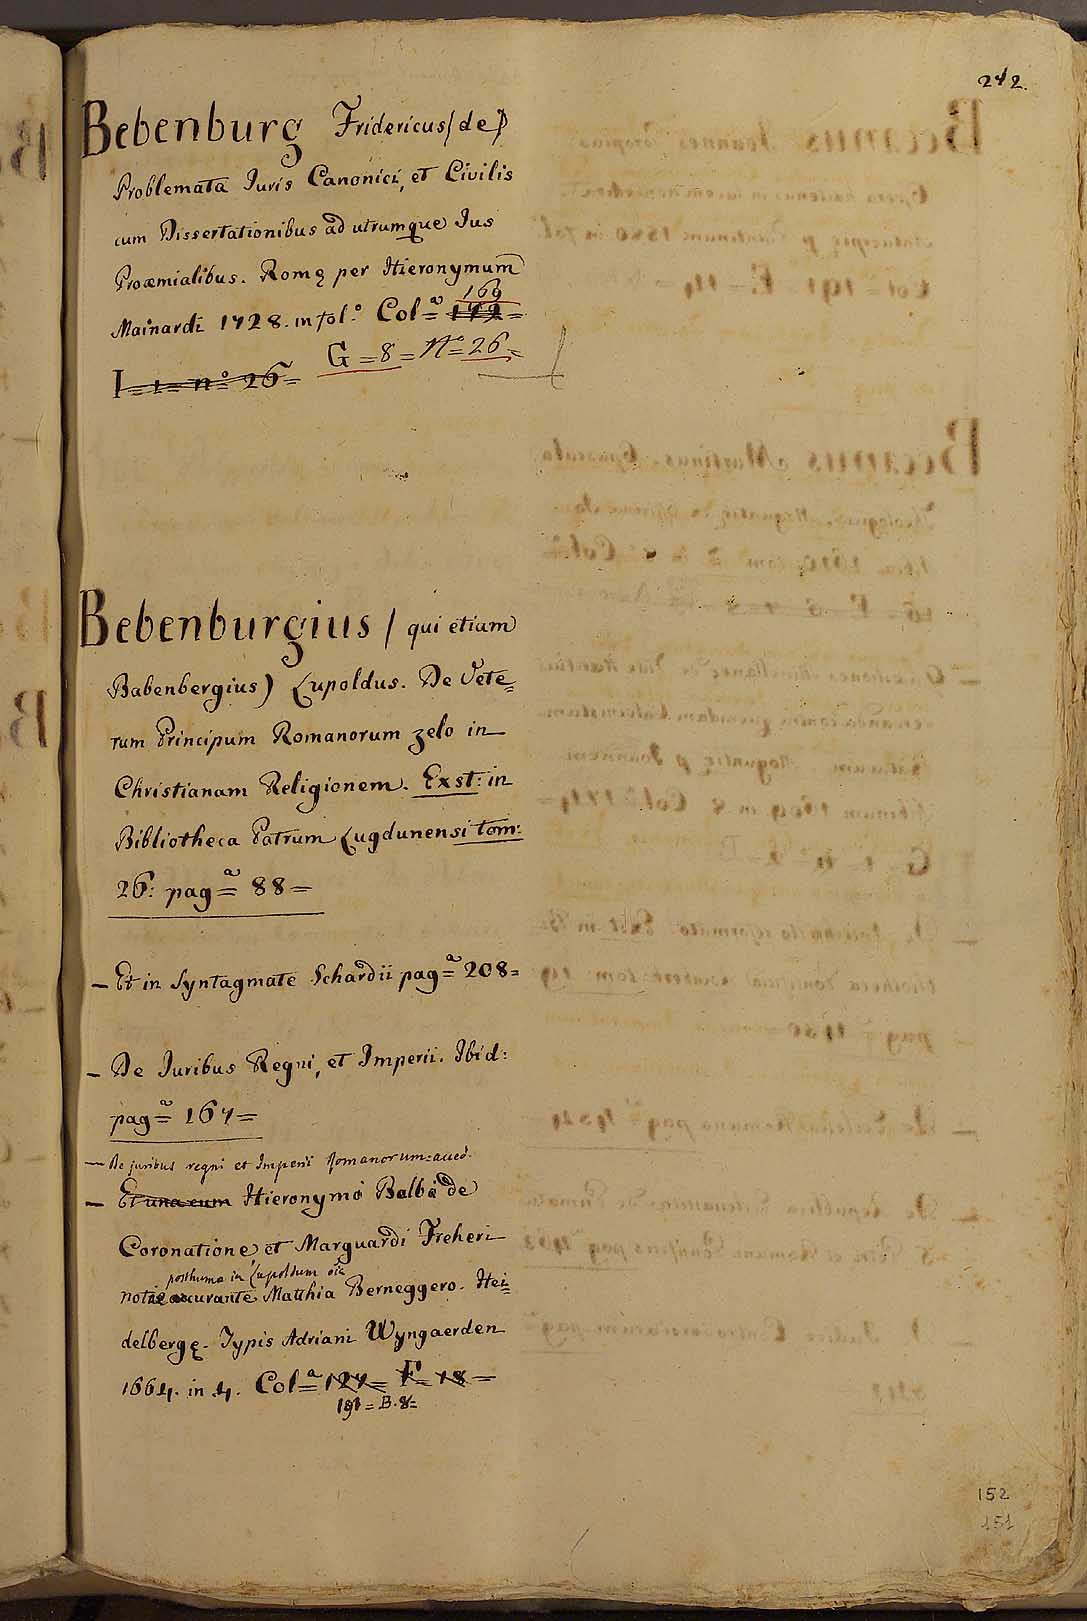 272.
Bebenburg Fridericus (de)
Problemata Juris Canonici, et Civilis
cum Dissertationibus ad utrumque Jus
Proæmialibus. Romę per Hieronymum
169
Mainardi 1728. in fol.° Col=ª 172=
G=8=N°=26=
I=1=n°=26=
Bebenburgius / qui etiam
Babenbergius) Lupoldus. De Vete=
rum Principum Romanorum zelo in
Christianam Religionem. Exst: in
Bibliotheca Patrum Lugdunensi tom:
26: pag=ª 88=
– Et in Syntagmate Schardii pag=ª 208=
– De Juribus Regni, et Imperii. Ibid:
pag=ª 167=
– De juribus regni et Imperii Romanorum: acced.
– Et una cum Hieronymo Balbo de
Coronatione, et Marguardi Freheri
posthuma in Lupoldum
notis accurante Matthia Berneggero. Hei=
delbergę. Typis Adriani Wyngaerden
1664. in 4. Col=ª 127= F= 18=
191=B.8=
152
151